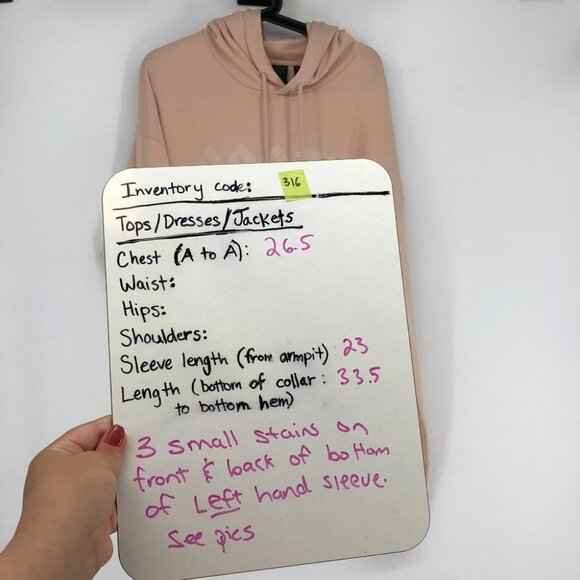 Inventory code: 316
Tops/Dresses/Jackets
Chest (A to A): 26.5
Waist:
Hips:
Shoulders:
Sleeve length (from armpit) 23
Length (bottom of collar: 33.5
to bottom hem)
3 small stains on
front & back of bottom
of Left hand sleeve.
See pics